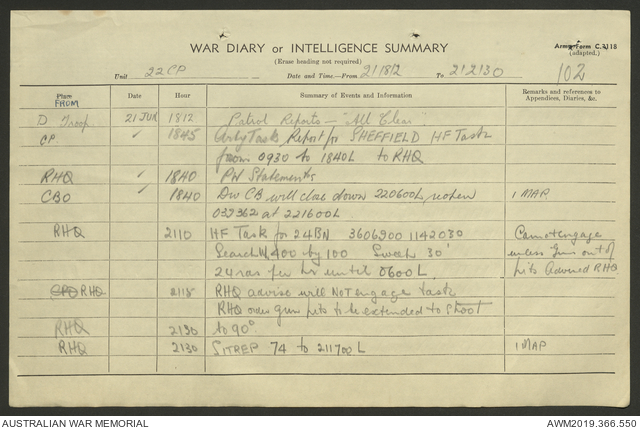 WAR DIARY or INTELLIGENCE SUMMARY
Army Form C.2118
(adapted.)
(Erase heading not required)
Unit 22 CP Date and Time—From 211812 To 212130 102
Place Date Hour Summary of Events and Information Remarks and references to Appendices, Diaries, &c.
FROM
D Troop 21 JUN 1812 Patrol Reports — "All Clear"
CP. " 1845 Arty Task Report for SHEFFIELD HF Task
from 0930 to 1840L to RHQ
RHQ " 1840 PW Statements
CBO " 1840 Div CB will close down 220600L, reopen 1 MAP
032362 at 221600L
RHQ 2110 HF Task for 24 BN 3606900 1142030 Cannot engage
Search 400 by 100 Sweep 30' unless Gun out of
24 ras per hr until 0600L. pits Advised RHQ.
RHQ 2118 RHQ advise will NOT engage task
RHQ order gun pits to be extended to shoot
RHQ 2130 to 90°
RHQ 2130 SITREP 74 to 211700L 1 MAP
AUSTRALIAN WAR MEMORIAL AWM2019.366.550